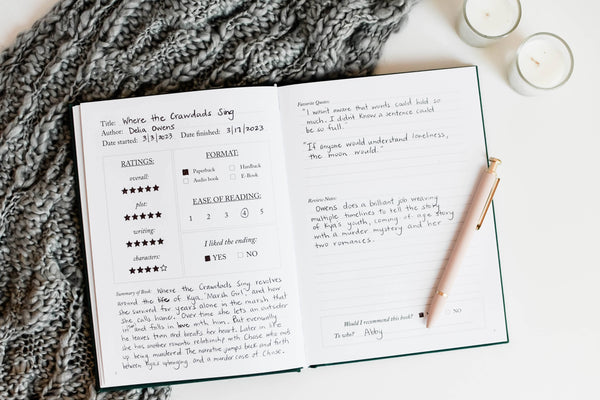 Title: Where the Crawdads Sing
Author: Delia Owens
Date started: 3/3/2023 Date finished: 3/17/2023
RATINGS:
overall:
★★★★★
plot:
★★★★★
writing:
★★★★★
characters:
★★★★☆
FORMAT:
Paperback Hardback
Audio book E-Book
EASE OF READING:
1 2 3 4 5
I liked the ending:
YES NO
Summary of Book: Where the Crawdads Sing revolves
around the life of Kya "Marsh Girl" and how
she survived for years alone in the marsh that
she calls home. Over time she lets an outsider
in and falls in love with him. But eventually
he leaves town and breaks her heart. Later in she
she has another romantic relationship with Chase who ends
up being murdered. The narrative jumps back and forth
between Kya's upbringing and a murder case of Chase.
Favorite Quotes:
"I wasn't aware that words could hold so
much. I didn't know a sentence could
be so full."
"If anyone would understand loneliness,
the moon would."
Review/Notes:
Owens does a brilliant job weaving
multiple timelines to tell the story
of Kya's youth, coming of age story
with a murder mystery and her
two romances.
Would I recommend this book? NO
To who? Abby